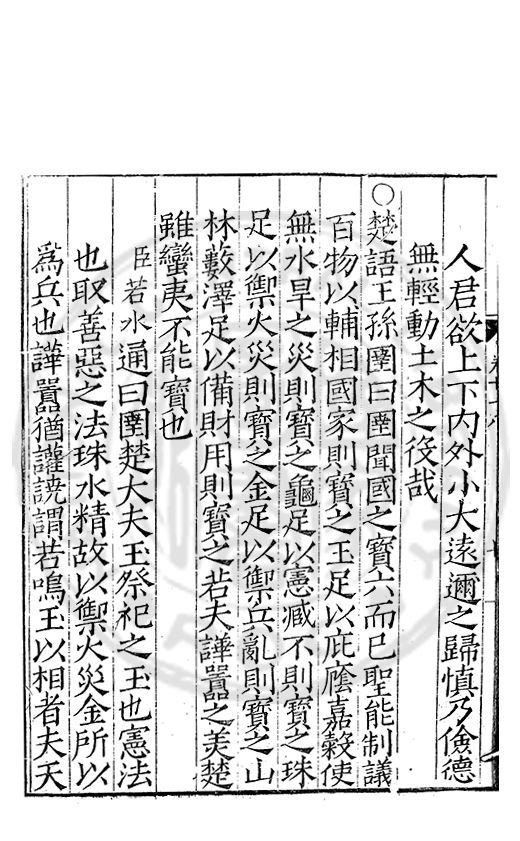 人君欲上下內外小大遠邇之歸慎乃儉德
無輕動土木之役哉
○楚語王孫圉曰圉聞國之寶六而已聖能制議
百物以輔相國家則寶之玉足以庇廕嘉穀使
無水旱之災則寶之龜足以憲臧不則寶之珠
足以禦火災則寶之金足以禦兵亂則寶之山
林藪澤足以備財用則寶之若夫譁囂之美楚
雖蠻夷不能寶也
臣若水通曰圉楚大夫玉祭祀之玉也憲法
也取善惡之法珠水精故以禦火災金所以
為兵也譁囂猶讙譊謂若鳴玉以相者夫天